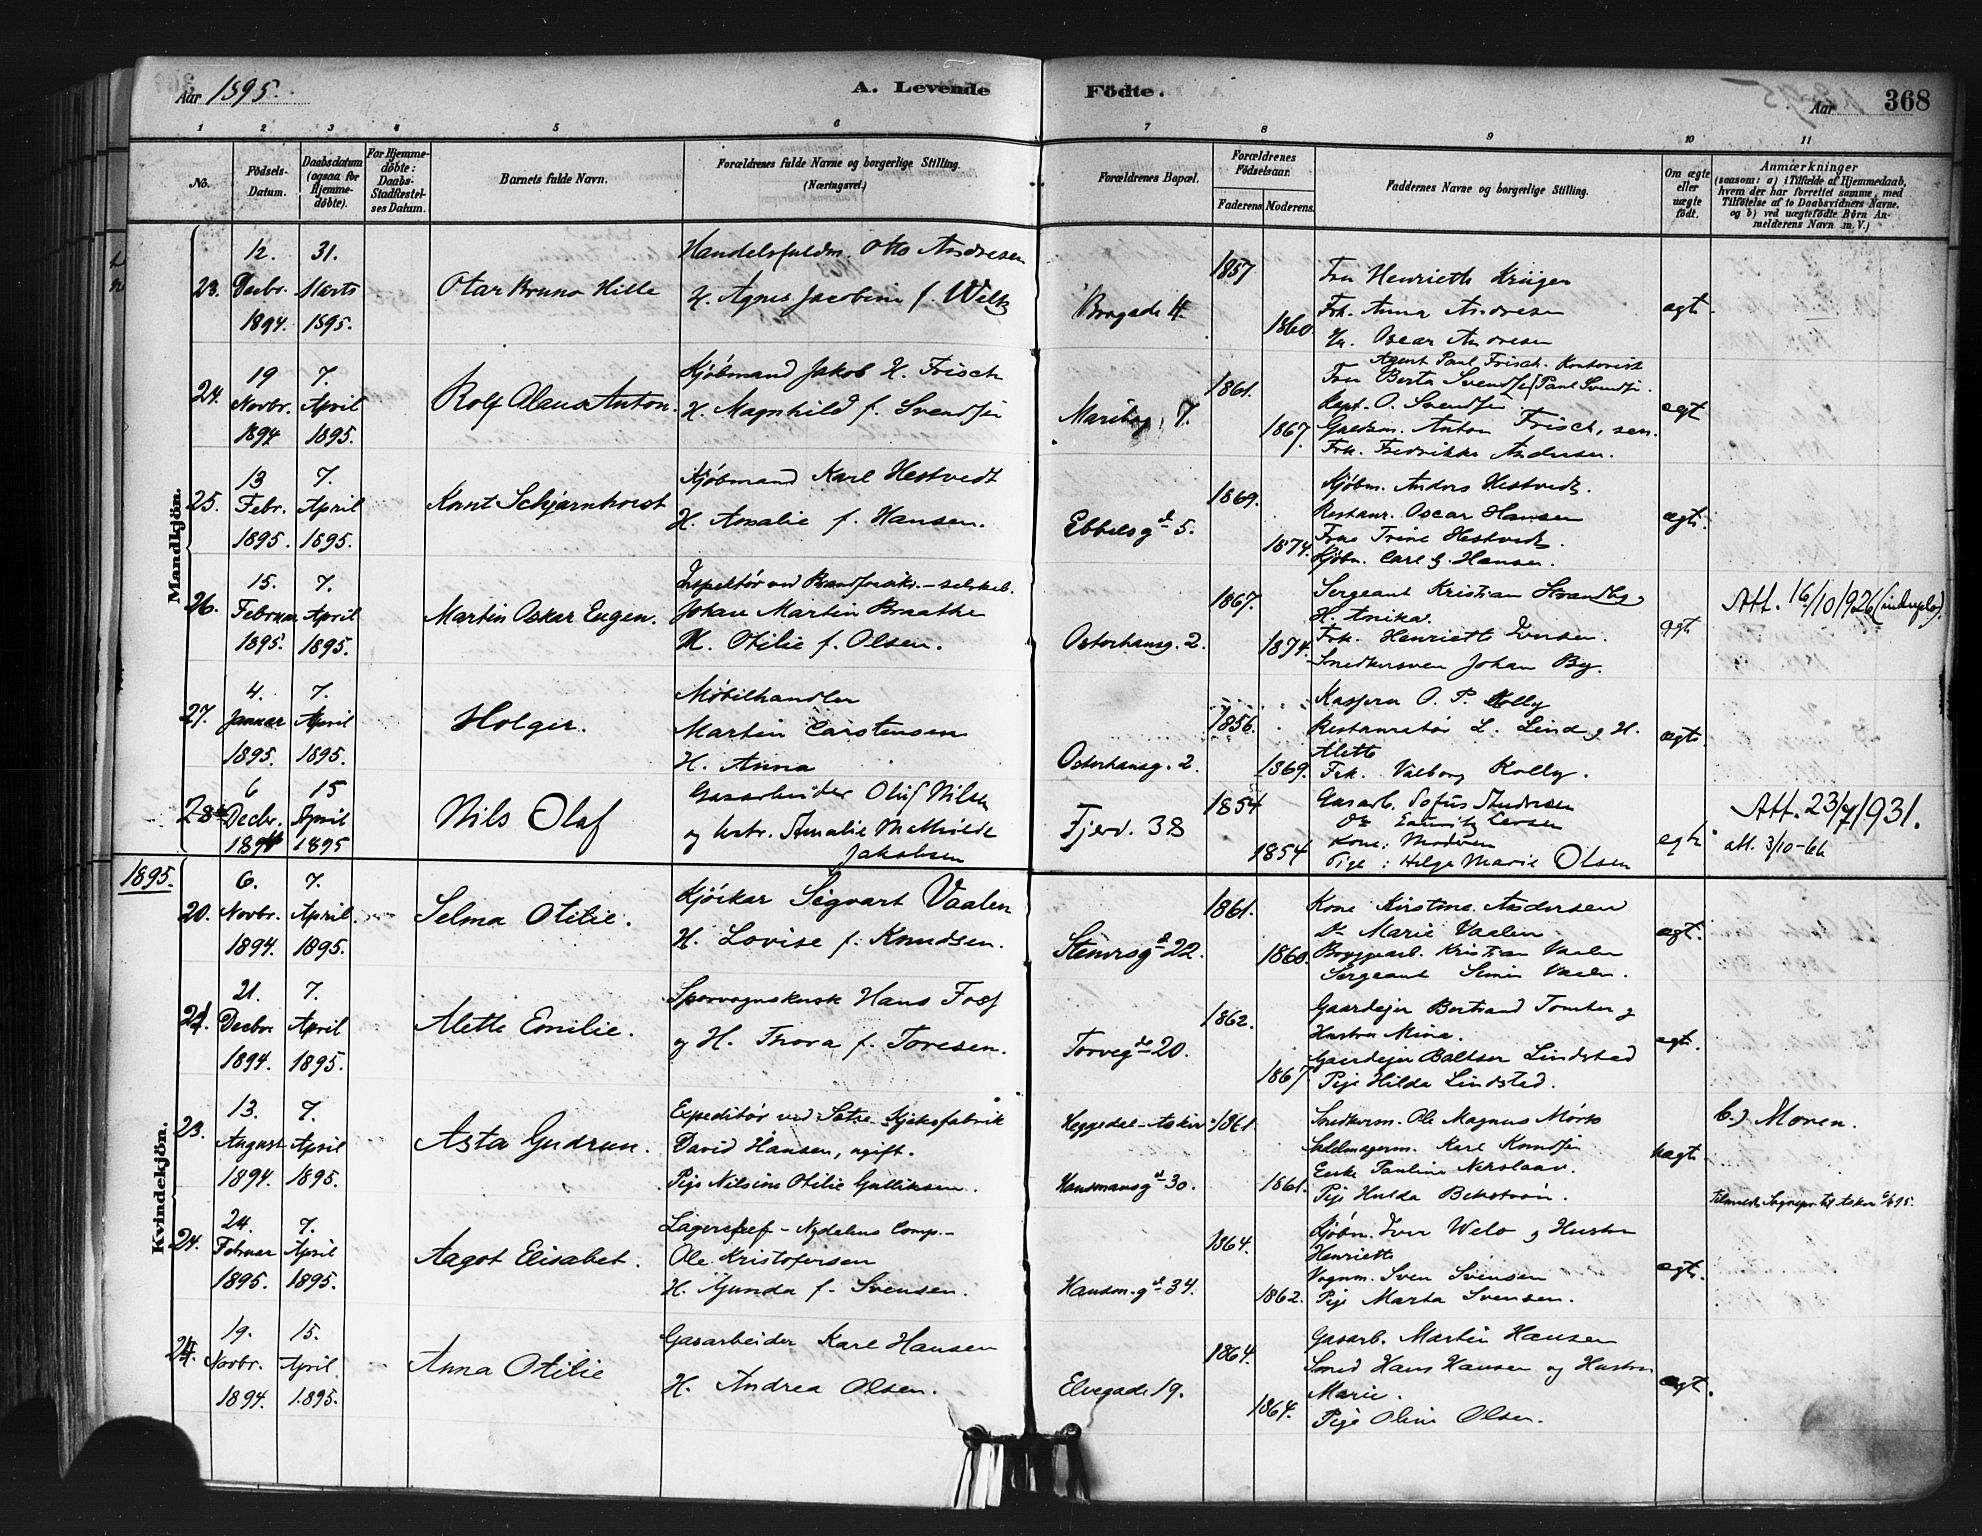 Aar 1895.
A. Levende Födte.
Aar 368
1 2 3 4 5 6 7 8 9 10 11
No.
Födsels-Datum.
Daabsdatum (ogsaa for Hjemme-döbte).
For Hjemme-döbte: Daabs-Stadfæstel-ses Datum.
Barnets fulde Navn.
Forældrenes fulde Navne og borgerlige Stilling.
(Næringsvei.)
Forældrenes Bopæl.
Forældrenes Födselsaar.
Faderens. Moderens.
Faddernes Navne og borgerlige Stilling.
Om ægte eller uægte födt.
Anmærkninger
(saasom: a) i Tilfælde af Hjemmedaab,
hvem der har forrettet samme, med
Tilföielse af to Daabsvidners Navne,
og b) ved uægtefödte Börn An-
melderens Navn m. V.)
Mandkjön.
23. 12. Decbr. 1894. 31. Marts 1895.
Otar Bruno Hille
Handelsfuldm. Otto Andresen
H. Agnes Jacobine f. Welz
Brogade 4.
1857
1860.
Fru Henriette Krüger
Frk. Anna Andresen
Hr. Oscar Andresen
ægte
24. 19 Novbr. 1894 7. April 1895.
Rolf Olaus Anton.
Kjöbmand Jakob H. Frisch
H. Magnhild f. Svendsen
7.
1861.
1867.
Agent Paul Frisch. Kontorist
Fru Berta Svendsen / Paul Svendsen.
Kapt. O. Svendsen
Anton Frisch, sen.
Frk. Fredrikke Andersen.
ægt
25. 13 Febr. 1895. 7. April 1895.
Knut Schjarnhorst
Kjöbmand Karl Hestvedt
H. Amalie f. Hansen.
Ebbelsgd 5.
1869.
1874.
Kjöbm. Anders Hestvedt.
Restaur. Oscar Hansen
Frue Trine Hestvedt.
Kjöbm. Carl G. Hansen.
ægte
26. 15. Februar 1895. 7. April 1895.
Martin Oskar Eugen.
Inspektör ved Brandforsikr.-selskab.
Johan Martin Braathe
H. Otilie f. Olsen.
Osterhausg. 2.
1867.
1874.
Sergeant Kristian Strandby
H. Anika.
Frk. Henriette Iversen.
Snedkersven Johan By.
ægte
Att. 16/10/926 (induplo).
27. 4. Januar 1895. 7. April 1895.
Holger.
Möbelhandler
Martin Carstensen
H. Anna
Osterhausg. 2.
1856.
1869.
O. P. Kolby
Restauratör L. Lind og H.
Alette
Frk. Valborg Kolby.
ægte.
28. 6 Decbr. 1894 15 April 1895
Nils Olaf
Gasarbeider Oluf Nilsen
og hstr. Amalie Mathilde
Jakobsen
Fjerd. 38
1854
1854
Gasarb. Sofus Andresen
Do Larsen
Kone: Moderen
Pige: Helga Marie Olsen
ægte
Att. 23/7 1931.
att. 3/10-66
Kvindekjön.
1895.
20. 6. Novbr. 1894 7. April 1895.
Selma Otilie.
Kjöskar Sigvart Vaalen
H. Lovise f. Knudsen.
Stenersgd 22.
1861.
1860.
Kone Kirstine Andersen
Do Marie Vaalen
Bryggearb. Kristian Vaalen
Sergeant Simen Vaalen.
ægt.
21. Decbr 1894 7. April 1895.
Alette Emilie.
Sporvognskusk Hans Foss
og H. Thora f. Toresen.
Torvegd 20.
1862.
1867.
Gaardejer Bertrand Tomter og
Hustru Mina.
Gaardejer Baltser Lindstad
Pige Hilda Lindstad.
ægt.
23. 13. August 1894. 7. April 1895.
Asta Gudrun.
Expeditör ved Sætre Kjeksfabrik
David Hansen, ugift.
Pige Nilsine Otilie Gulliksen.
Heggedal - Asker
Hausmannsgd 30.
1861
1861.
Snedkerm. Ole Magnus Mörk
Sadelmagerm. Karl Knudsen
Enke Pauline
Pige Hulda Bekström.
uægte
b.) Moren.
24. 24. Februar 1895. 7. April 1895.
Aagot Elisabet.
Lagerchef - Nydalens Comp.-
Ole Kristofersen
H. Gunda f. Svensen.
Hausm.gd 34.
1864.
1862.
Kjöbm. Iver Welo og Hustru
Henriette
Vognm. Sven Svensen
Pige Marta Svensen.
ægte.
19. Novbr. 1894. 15. April 1895.
Anna Otilie
Gasarbeider Karl Hansen
H. Andrea Olsen.
Elvegade 19.
1864.
1864.
Gasarb. Martin Hansen
Smed Hans Hansen og Hustru
Marie.
Pige Oline Olsen.
ægt.